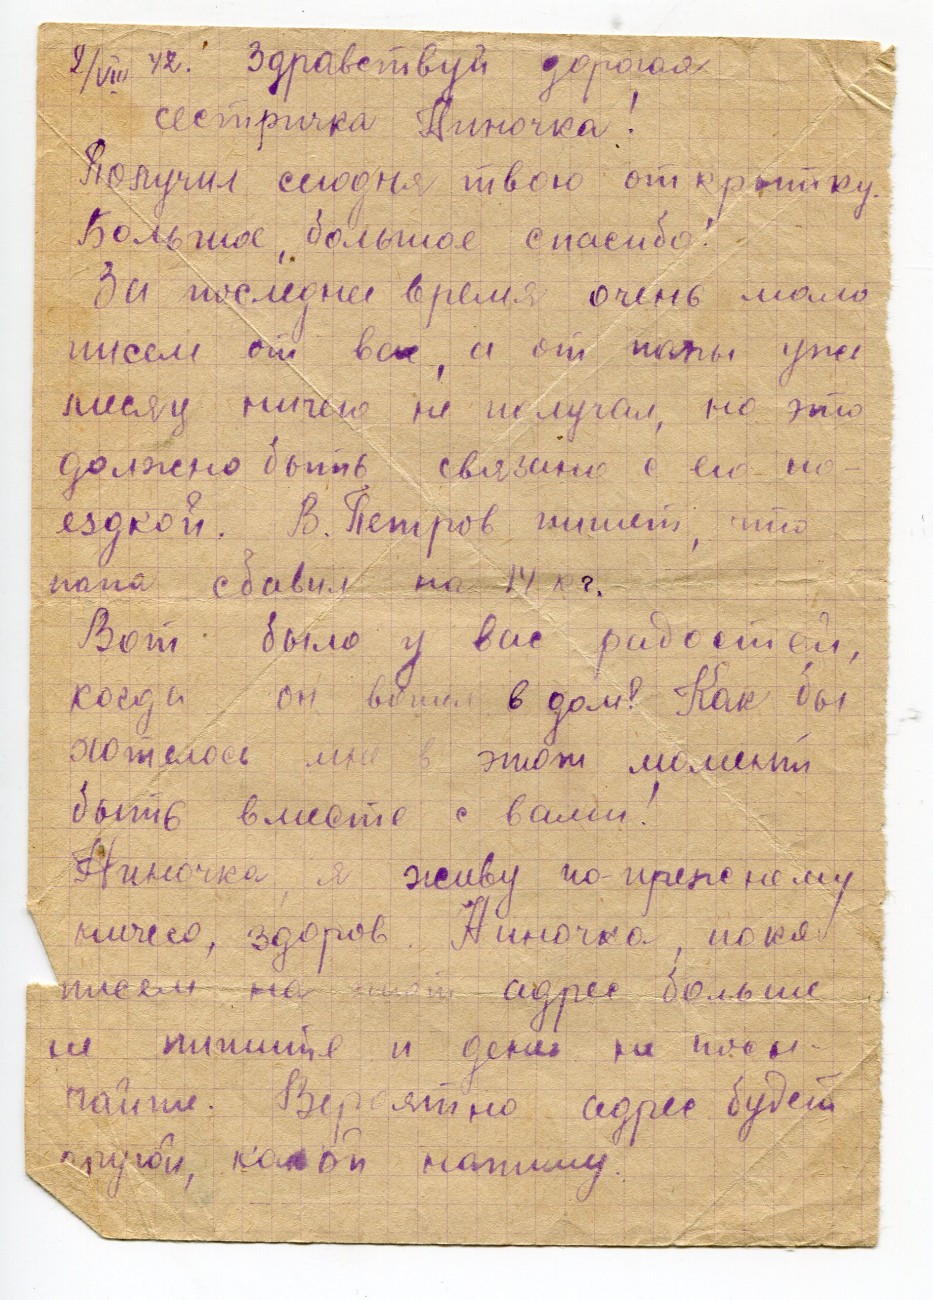 2/VIII 42. Здравствуй дорогая
сестричка Ниночка!
Получил сегодня твою открытку.
Большое, большое спасибо!
За последнее время очень мало
писем от вас, а от папы уже
месяц ничего не получал, но это
должно быть связано с его по-
ездкой. В. Петров пишет, что
папа сбавил на 14 кг.
Вот было у вас радостей,
когда он вошел в дом! Как бы
хотелось мне в этот момент
быть вместе с вами!
Ниночка, я живу по-прежнему
ничего, здоров. Ниночка, пока
писем на этот адрес больше
не пишите и денег не посы-
лайте. Вероятно адрес будет
другой, какой напишу.